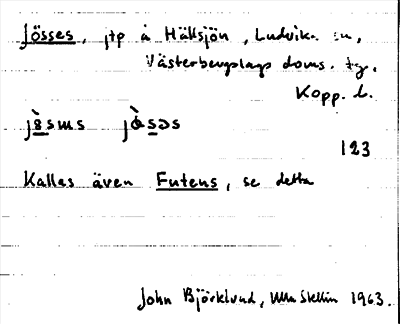 Jösses, jtp å Hällsjön, Ludvika sn,
Västerbergslags doms. tg,
Kopp. l.
123
Kallas även Futens, se detta
John Björklund, 1963.